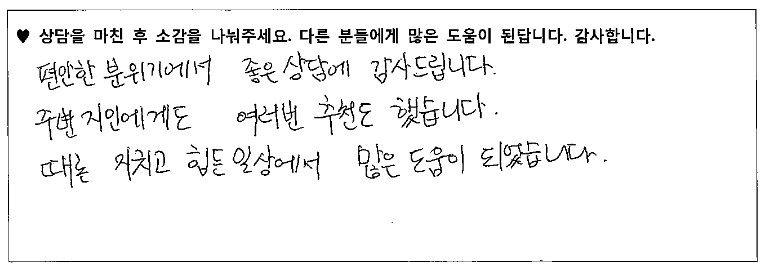 ♥ 상담을 마친 후 소감을 나눠주세요. 다른 분들에게 많은 도움이 된답니다. 감사합니다.
편안한 분위기에서 좋은 상담에 감사드립니다.
주변 지인에게도 여러번 추천도 했습니다.
때론 지치고 힘든 일상에서 많은 도움이 되었습니다.